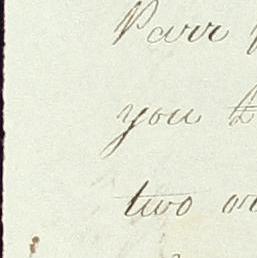 Parr
you
two